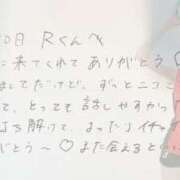 0日 Rくんへ
に来てくれてありがとう♡
ましてだけど、ずっとニコニコ
て、とっても話しやすかっ
ち解けて、まったりイチャ
がとう〜♡また会えると